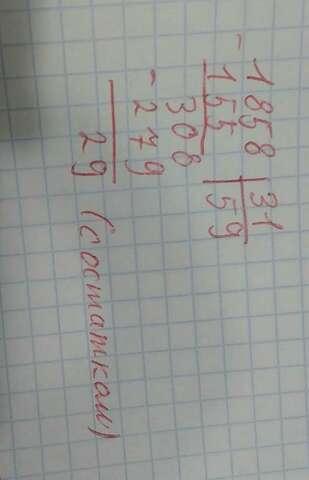 -1858 31
155 59
308
-279
29 (с остатком)